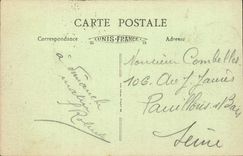 CARTE POSTALE
Correspondance UNIS-FRANCE Adresse
à dimanche
Monsieur Combelles
106 Av J. Jaurès
Pavillons s/Bois
Seine